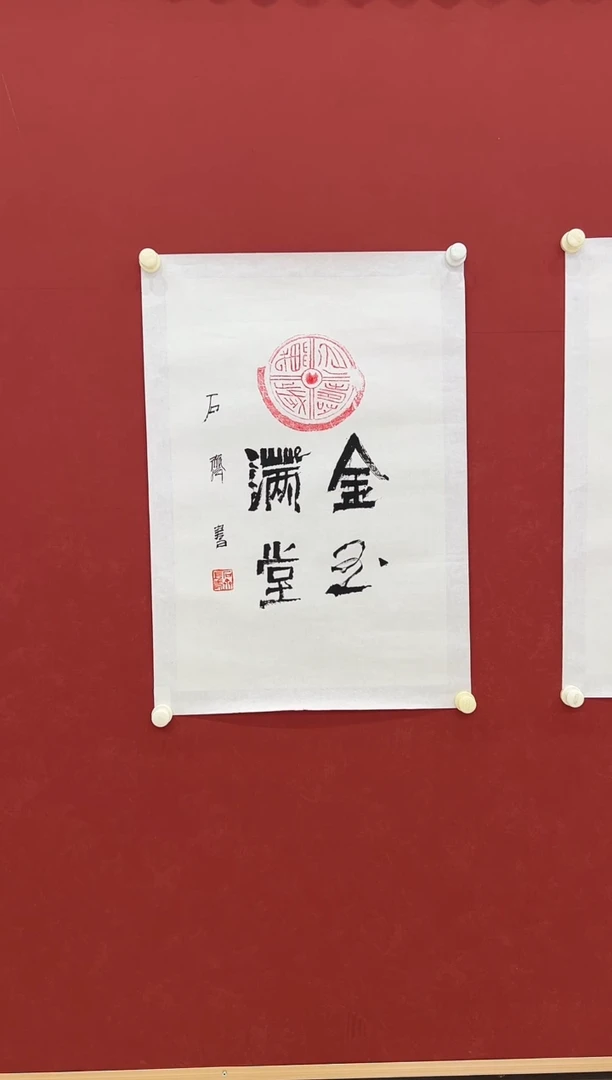 金玉
滿堂
石齊書